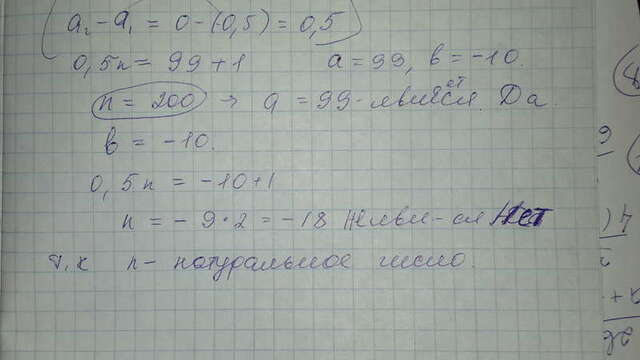 a₂-a₁ = 0-(0,5) = 0,5
0,5n = 99+1 a=99, в=-10.
n = 200 → a = 99-является. Да
в = -10.
0,5n = -10+1
n = -9·2 = -18 Не яви-ся Нет
т.к n- натуральное число.